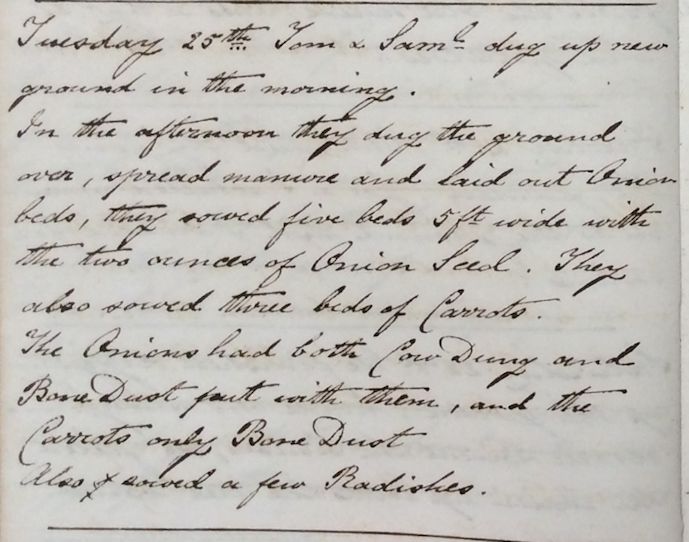 Tuesday 25th Tom & Saml dug up new
ground in the morning.
In the afternoon they dug the ground
over, spread manure and laid out Onion
beds, they sowed five beds 5 ft wide with
the two ounces of Onion Seed. They
also sowed three beds of Carrots.
The Onions had both Cow Dung and
Bone Dust put with them, and the
Carrots only Bone Dust
Also sowed a few Radishes.